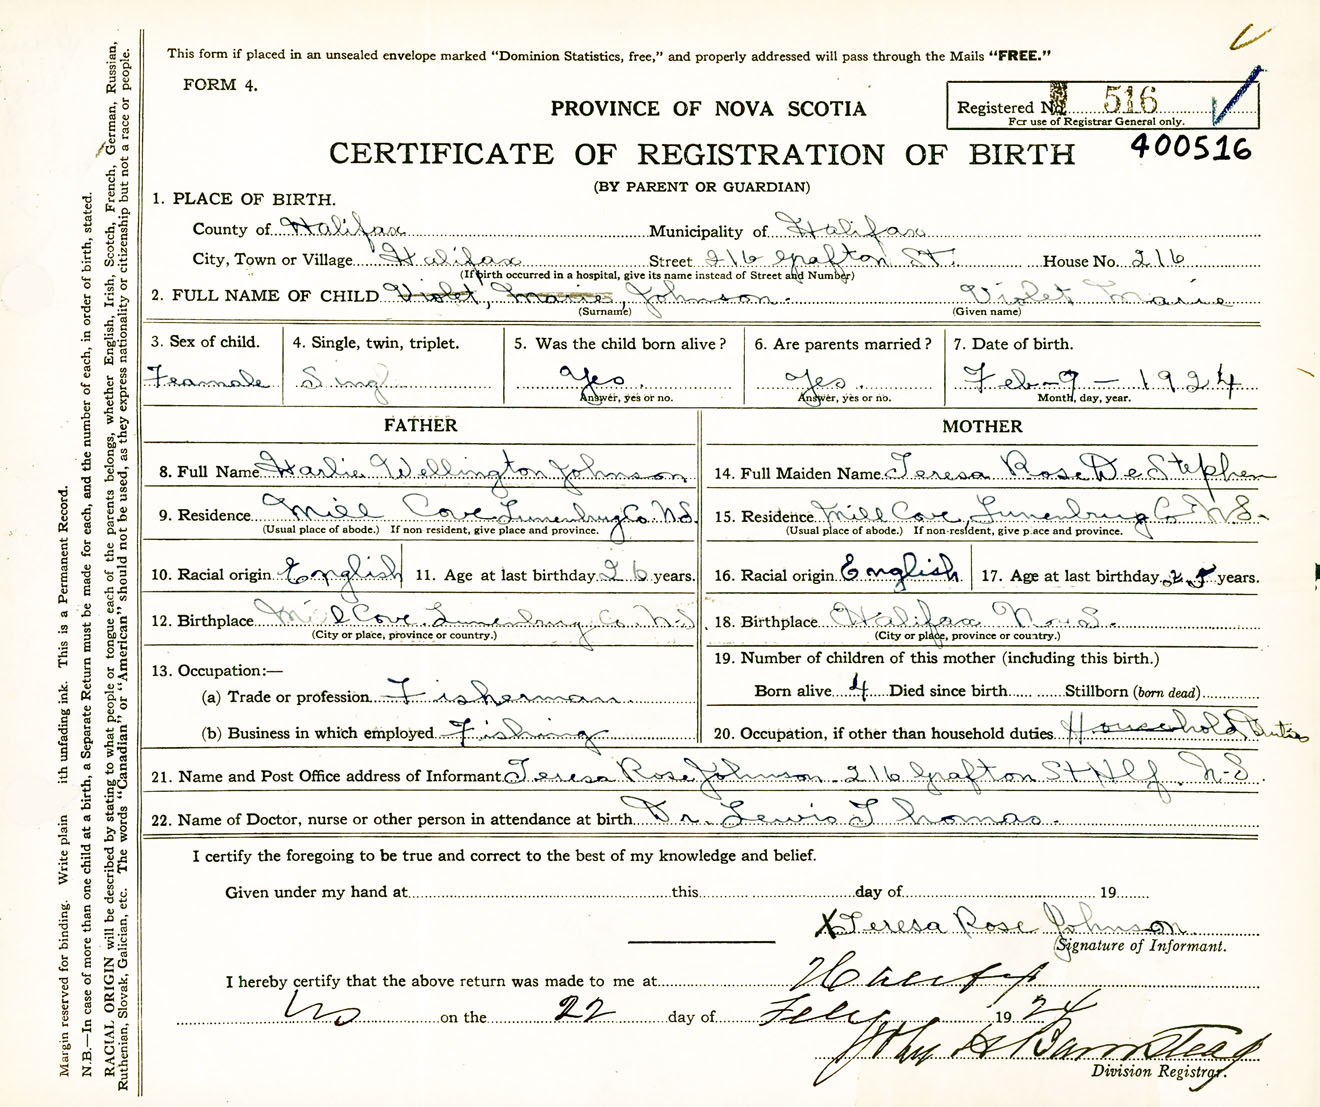 This form if placed in an unsealed envelope marked "Dominion Statistics, free," and properly addressed will pass through the Mails "FREE."
FORM 4.
PROVINCE OF NOVA SCOTIA
Registered No. 516
For use of Registrar General only.
400516
CERTIFICATE OF REGISTRATION OF BIRTH
(BY PARENT OR GUARDIAN)
1. PLACE OF BIRTH.
County of Halifax Municipality of Halifax
City, Town or Village Halifax Street 216 Grafton St. House No. 216
(If birth occurred in a hospital, give its name instead of Street and Number)
2. FULL NAME OF CHILD Violet, Marie, Johnson. Violet Marie
(Surname) (Given name)
3. Sex of child. 4. Single, twin, triplet. 5. Was the child born alive? 6. Are parents married? 7. Date of birth.
Feamale Singl Yes. Yes. Feb-9-1924
Answer, yes or no. Answer, yes or no. Month, day, year.
FATHER MOTHER
8. Full Name Harlie Wellington Johnson 14. Full Maiden Name Teresa Rose DeStephen
9. Residence Mill Cove Lunenburg Co. N.S. 15. Residence Mill Cove, Lunenburg Co N.S.
(Usual place of abode.) If non-resident, give place and province. (Usual place of abode.) If non-resident, give place and province.
10. Racial origin English 11. Age at last birthday 26 years. 16. Racial origin English 17. Age at last birthday 25 years.
12. Birthplace Mill Cove Lunenburg Co. N.S 18. Birthplace Halifax N.S.
(City or place, province or country.) (City or place, province or country.)
13. Occupation:— 19. Number of children of this mother (including this birth.)
(a) Trade or profession Fisherman Born alive 4 Died since birth Stillborn (born dead)
(b) Business in which employed Fishing 20. Occupation, if other than household duties Household Duties
21. Name and Post Office address of Informant Teresa Rose Johnson. 216 Grafton St Hlf. N-S.
22. Name of Doctor, nurse or other person in attendance at birth Dr. Lewis Thomas.
I certify the foregoing to be true and correct to the best of my knowledge and belief.
Given under my hand at this day of 19
X Teresa Rose Johnson
Signature of Informant.
I hereby certify that the above return was made to me at Halifax
NS on the 22 day of Feby 1924
John H Barnstead
Division Registrar.
Margin reserved for binding. Write plain ith unfading ink. This is a Permanent Record.
N.B.—In case of more than one child at a birth, a Separate Return must be made for each, and the number of each, in order of birth, stated.
RACIAL ORIGIN will be described by stating to what people or tongue each of the parents belongs, whether English, Irish, Scotch, French, German, Russian,
Ruthenian, Slovak, Galician, etc. The words "Canadian" or "American" should not be used, as they express nationality or citizenship but not a race or people.